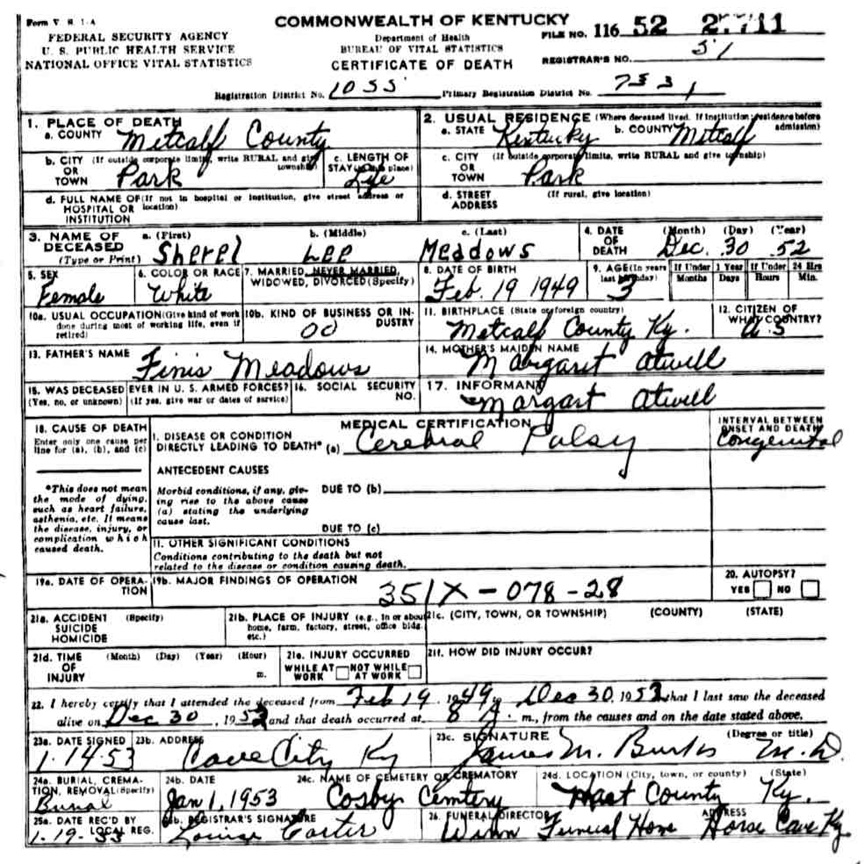 Form V. S. 1-A
COMMONWEALTH OF KENTUCKY
FEDERAL SECURITY AGENCY
U. S. PUBLIC HEALTH SERVICE
NATIONAL OFFICE VITAL STATISTICS
Department of Health
BUREAU OF VITAL STATISTICS
CERTIFICATE OF DEATH
FILE NO. 116 52
REGISTRAR'S NO. 51
Registration District No. 1055 Primary Registration District No. 7531
1. PLACE OF DEATH
a. COUNTY Metcalf County
2. USUAL RESIDENCE (Where deceased lived. If institution: residence before admission)
a. STATE Kentucky b. COUNTY Metcalf
b. CITY OR TOWN (If outside corporate limits, write RURAL and give township) Park
c. LENGTH OF STAY (in this place) Life
c. CITY OR TOWN (If outside corporate limits, write RURAL and give township) Park
d. FULL NAME OF HOSPITAL OR INSTITUTION (If not in hospital or institution, give street address or location)
d. STREET ADDRESS (If rural, give location)
3. NAME OF DECEASED (Type or Print)
a. (First) Sherel b. (Middle) Lee c. (Last) Meadows
4. DATE OF DEATH (Month) (Day) (Year) Dec. 30 52
5. SEX Female
6. COLOR OR RACE White
7. MARRIED, NEVER MARRIED, WIDOWED, DIVORCED (Specify)
8. DATE OF BIRTH Feb. 19 1949
9. AGE (In years last birthday) 3 If Under 1 Year Months Days If Under 24 Hrs Hours Min.
10a. USUAL OCCUPATION (Give kind of work done during most of working life, even if retired)
10b. KIND OF BUSINESS OR INDUSTRY 00
11. BIRTHPLACE (State or foreign country) Metcalf County Ky.
12. CITIZEN OF WHAT COUNTRY? U.S
13. FATHER'S NAME Finis Meadows
14. MOTHER'S MAIDEN NAME Margaret Atwell
15. WAS DECEASED EVER IN U. S. ARMED FORCES? (Yes, no, or unknown) (If yes, give war or dates of service)
16. SOCIAL SECURITY NO.
17. INFORMANT Margart Atwell
18. CAUSE OF DEATH
Enter only one cause per line for (a), (b), and (c)
MEDICAL CERTIFICATION
INTERVAL BETWEEN ONSET AND DEATH
1. DISEASE OR CONDITION DIRECTLY LEADING TO DEATH* (a) Cerebral Palsy Congenital
*This does not mean the mode of dying, such as heart failure, asthenia, etc. It means the disease, injury, or complication which caused death.
ANTECEDENT CAUSES
Morbid conditions, if any, giving rise to the above cause (a) stating the underlying cause last.
DUE TO (b)
DUE TO (c)
11. OTHER SIGNIFICANT CONDITIONS
Conditions contributing to the death but not related to the disease or condition causing death.
19a. DATE OF OPERATION
19b. MAJOR FINDINGS OF OPERATION 351X-078-28
20. AUTOPSY? YES NO
21a. ACCIDENT SUICIDE HOMICIDE (Specify)
21b. PLACE OF INJURY (e.g., in or about home, farm, factory, street, office bldg. etc.)
21c. (CITY, TOWN, OR TOWNSHIP) (COUNTY) (STATE)
21d. TIME OF INJURY (Month) (Day) (Year) (Hour) m.
21e. INJURY OCCURRED WHILE AT WORK NOT WHILE AT WORK
21f. HOW DID INJURY OCCUR?
22. I hereby certify that I attended the deceased from Feb 19, 1949, to Dec 30, 1952, that I last saw the deceased
alive on Dec 30, 1952 and that death occurred at 8 A. m., from the causes and on the date stated above.
23a. DATE SIGNED 1-14-53
23b. ADDRESS Cave City Ky
23c. SIGNATURE (Degree or title) James M. Burks M.D.
24a. BURIAL, CREMATION, REMOVAL (Specify) Burial
24b. DATE Jan 1, 1953
24c. NAME OF CEMETERY OR CREMATORY Cosby Cemtery
24d. LOCATION (City, town, or county) (State) Hart County Ky.
25a. DATE REC'D BY LOCAL REG. 1-19-53
25b. REGISTRAR'S SIGNATURE Louise Carter
26. FUNERAL DIRECTOR Winn Funeral Home ADDRESS Horse Cave Ky